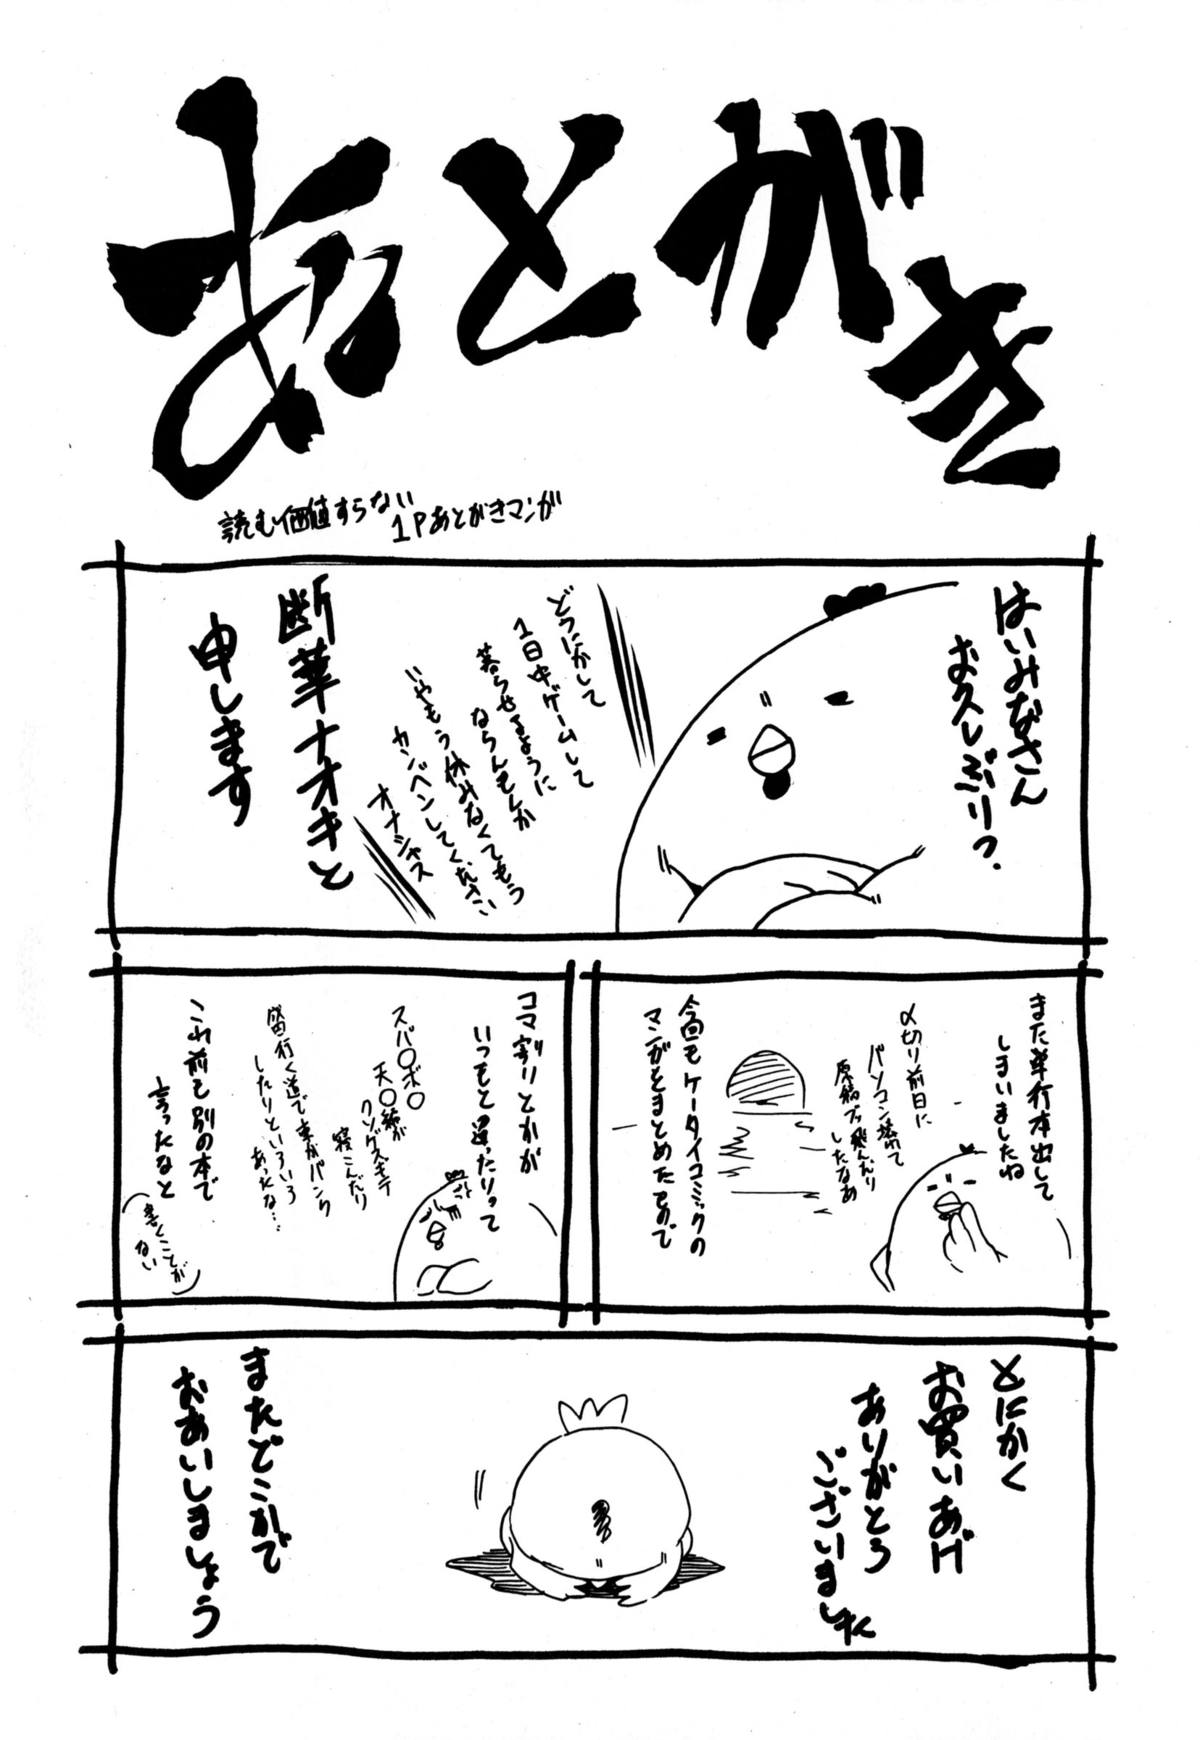 あとがき
読む価値すらない
1Pあとがきマンガ
はいみなさん
お久しぶりっ.
どうにかして
1日中ゲームして
暮らせるように
ならんもんか
いやもう休みなくてもう
カンベンしてください
オナシャス
断華ナオキと
申します
また単行本出して
しまいましたね
〆切り前日に
パソコン壊れて
原稿ブッ飛んだり
したなあ
今回もケータイコミックの
マンガをまとめたもので
コマ割りとかが
いつもと違ったりって
スパ〇ボ〇
天〇編が
クソゲスギテ
寝こんだり
盛岡行く道で車がパンク
したりといろいろ
あったな…
これ前も別の本で
言ったなと
(書くことが
ない)
とにかく
お買いあげ
ありがとう
ございました
またどこかで
おあいしましょう